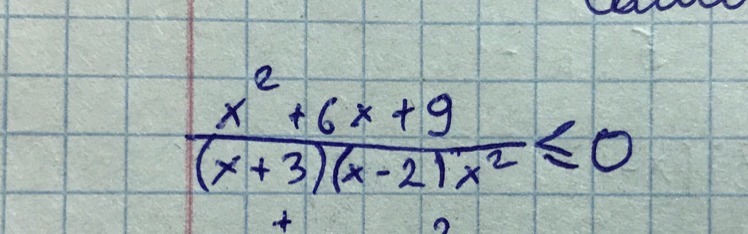 x² + 6x + 9
(x + 3)(x - 2)x² ≤ 0
+